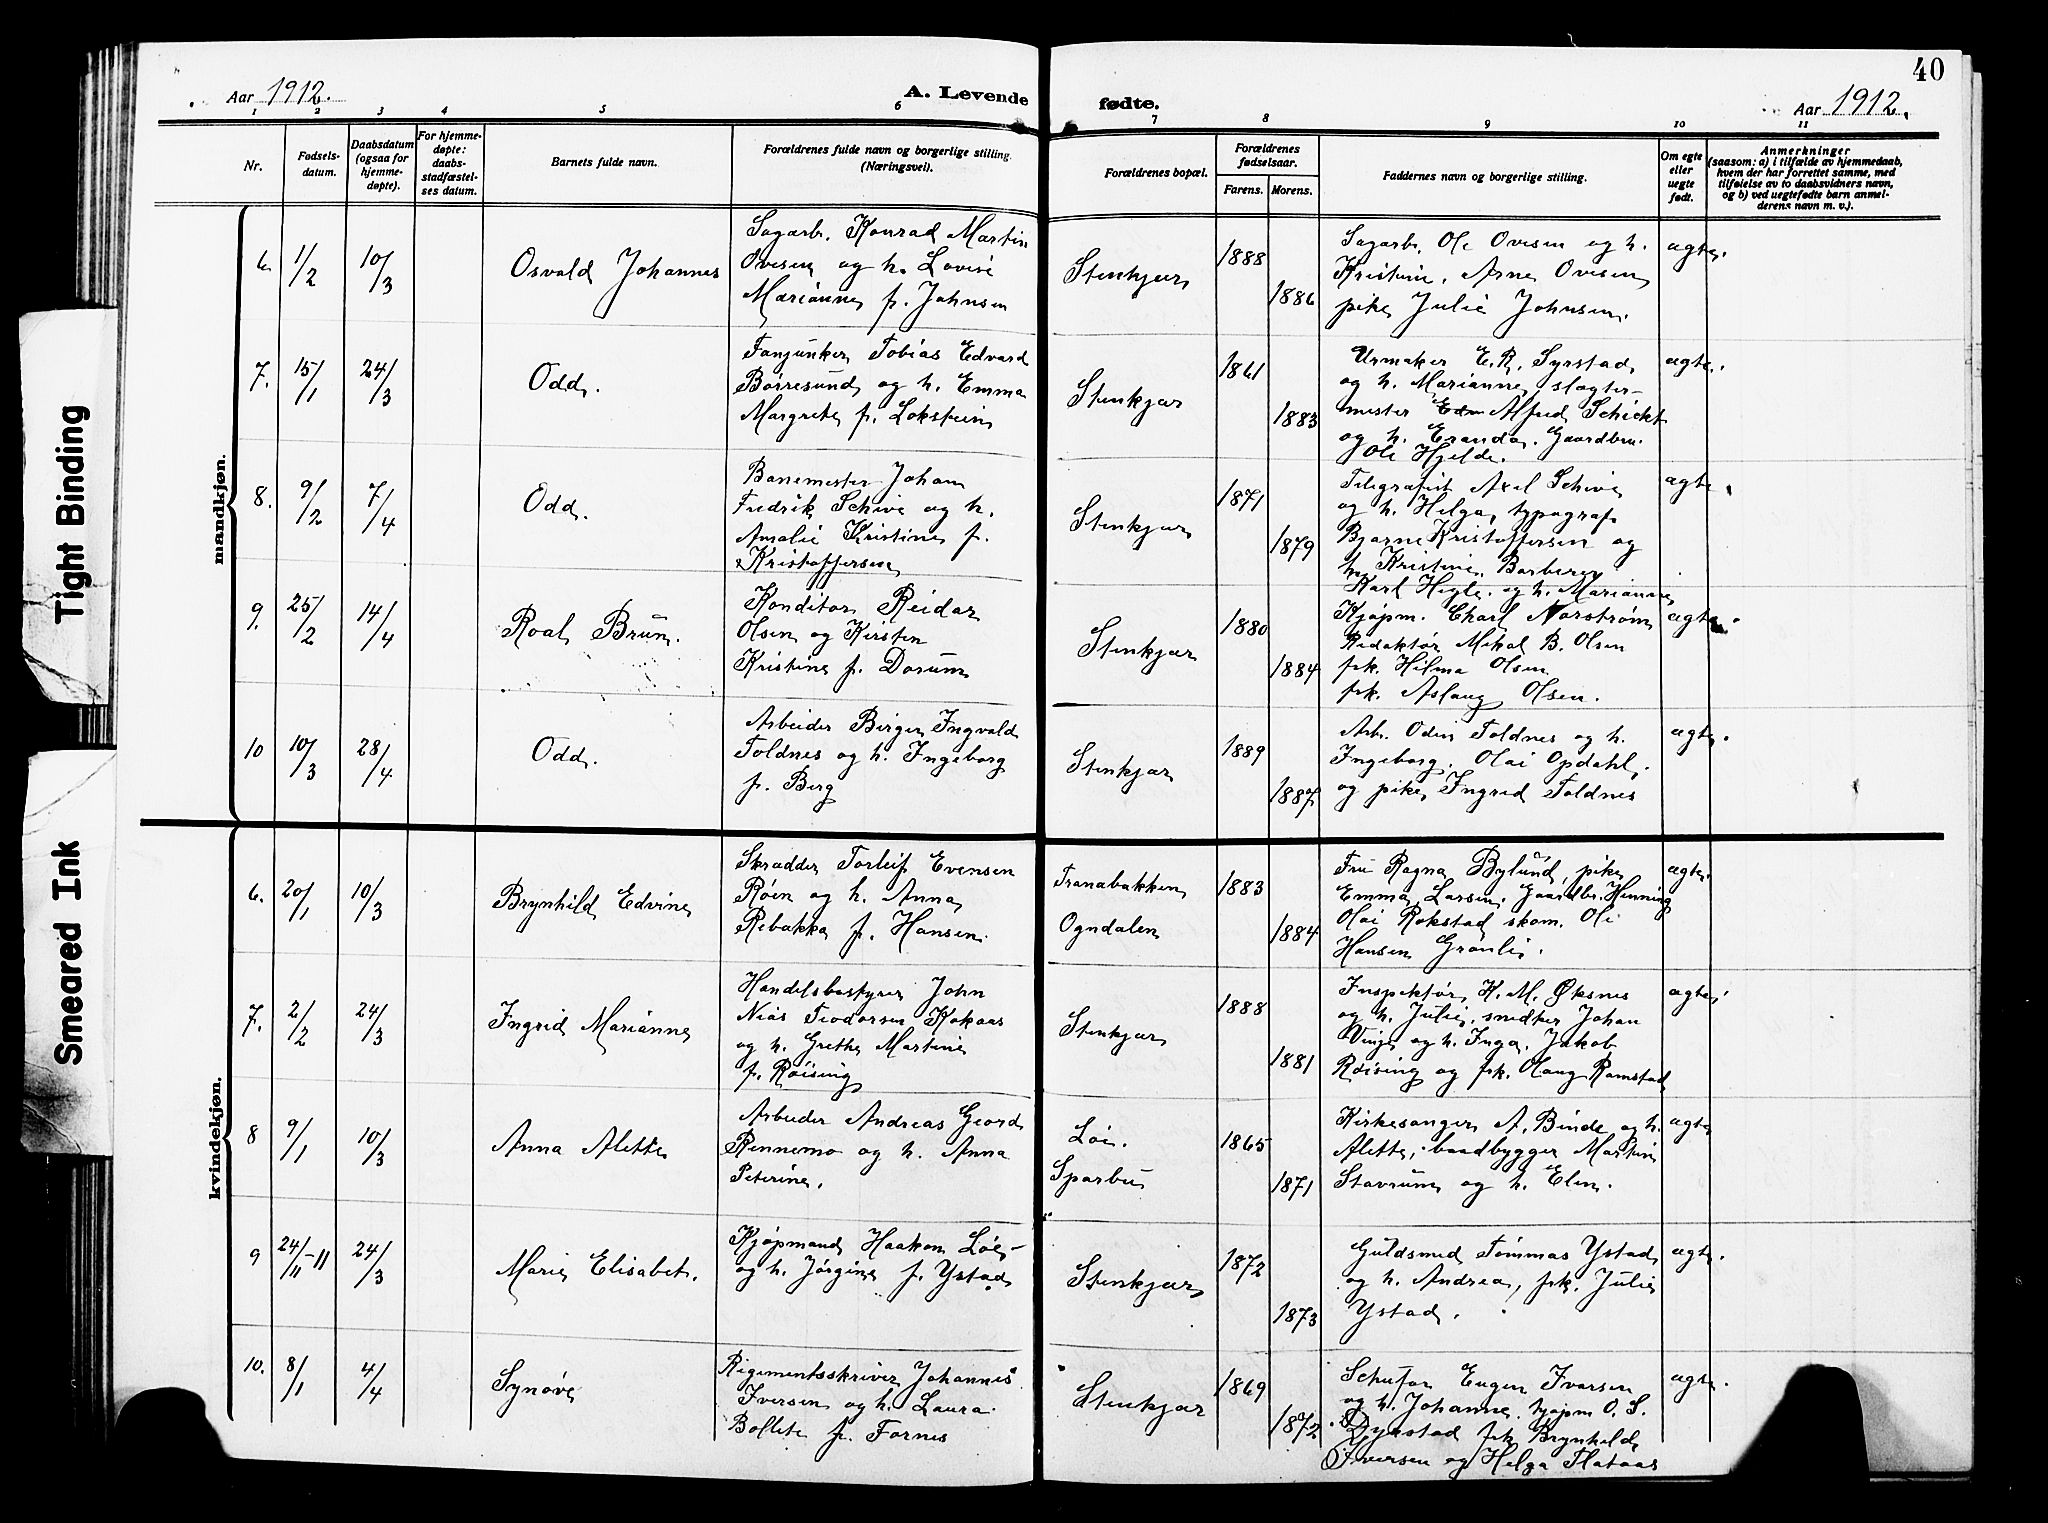 40
Aar 1912.
A. Levende
fødte.
Aar 1912.
1 2 3 4 5 6 7 8 9 10 11
Nr.
Fødsels-
datum.
Daabsdatum
(ogsaa for
hjemme-
døpte).
For hjemme-
døpte:
daabs-
stadfæstel-
ses datum.
Barnets fulde navn.
Forældrenes fulde navn og borgerlige stilling.
(Næringsvei).
Forældrenes bopæl.
Forældrenes
fødselsaar.
Farens. Morens.
Faddernes navn og borgerlige stilling.
Om egte
eller
uegte
født.
Anmerkninger
(saasom: a) i tilfælde av hjemmedaab,
hvem der har forrettet samme, med
tilføielse av to daabsvidners navn,
og b) ved uegtefødte barn anmel-
derens navn m. v.).
mandkjøn.
6. 1/2 10/3
Osvald Johannes
Sagarb. Konrad Martin
Ovesen og h. Lovise
Marianne f. Johnsen
Stenkjær
1888
1886
Sagarb. Ole Ovesen og h.
Kristine. Arne Ovesen
pike Julie Johnsen.
ægte.
7. 15/1 24/3
Odd.
Fanjunker Tobias Edvard
Børresund og h. Emma
Margrete f. Lokstein
Stenkjær
1861
1883
Urmaker E. R. Syrstad
og h. Marianne, slagter-
mester Alfred Schickt
og h. Eranda. Gaardbru.
Ole Hjelde.
ægte.
8. 9/2 7/4
Odd.
Banemester Johan
Fredrik Schive og h.
Amalie Kristine f.
Kristoffersen
Stenkjær
1871
1879
Telegrafist Axel Schive
og h. Helga, typograf
Bjarne Kristoffersen og
h. Kristine. Barberer
Karl Hegle og h. Marianne
ægte.
9. 25/2 14/4
Roal Brun.
Konditor Reidar
Olsen og Kirsten
Kristine f. Dorum
Stenkjær
1880
1884
Kjøpm. Charl Norstrøm
Redaktør Mikal B. Olsen
frk. Hilma Olsen
frk. Aslaug Olsen.
ægte.
10 10/3 28/4
Odd.
Arbeider Birger Ingvald
Foldnes og h. Ingeborg
f. Berg
Stenkjær
1889
1887
Arb. Odin Foldnes og h.
Ingeborg. Olai Opdahl,
og pike Ingrid Foldnes
ægte.
kvindekjøn.
6. 20/1 10/3
Brynhild Edvine
Skrædder Torleif Evensen
Røen og h. Anna
Rebakka f. Hansen.
Tranabakken
Ogndalen
1883
1884
Fru Ragna Bylund, pike
Emma Larsen. Gaardbr. Henning
Olai Rokstad skom. Ole
Hansen Grønli.
ægte.
7. 2/2 24/3
Ingrid Marianne
Handelsbestyrer John
Niås Teodorsen Kokaas
og h. Grethe Martine
f. Røising
Stenkjær
1888
1881
Inspektør K. M. Øksnes
og h. Julie, snedker Johan
Vinje og h. Inga. Jakob
Røising og frk. Olaug Ramstad
ægte.
8 9/1 10/3
Anna Alette
Arbeider Andreas Geord
Rennemo og h. Anna
Peterine.
Løe.
Sparbu
1865
1871
Kirkesanger A. Binde og h.
Alette, baadbygger Martin
Stavrum og h. Elen.
ægte
9 24/11-11 24/3
Marie Elisabet.
Kjøpmand Haakon Løe
og h. Jørgine f. Ystad
Stenkjær
1872
1873
Guldsmed Tommas Ystad
og h. Andrea, frk. Julie
Ystad.
ægte.
10. 8/1 4/4
Synøve
Regimentsskriver Johannes
Iversen og h. Laura
Bollete f. Fornes
Stenkjær
1869
1872
Eugen Iversen
og h. Johanne, kjøpm O. S.
Dyrstad frk Brynhild
Iversen og Helga Flataas
ægte.
Tight Binding
Smeared Ink